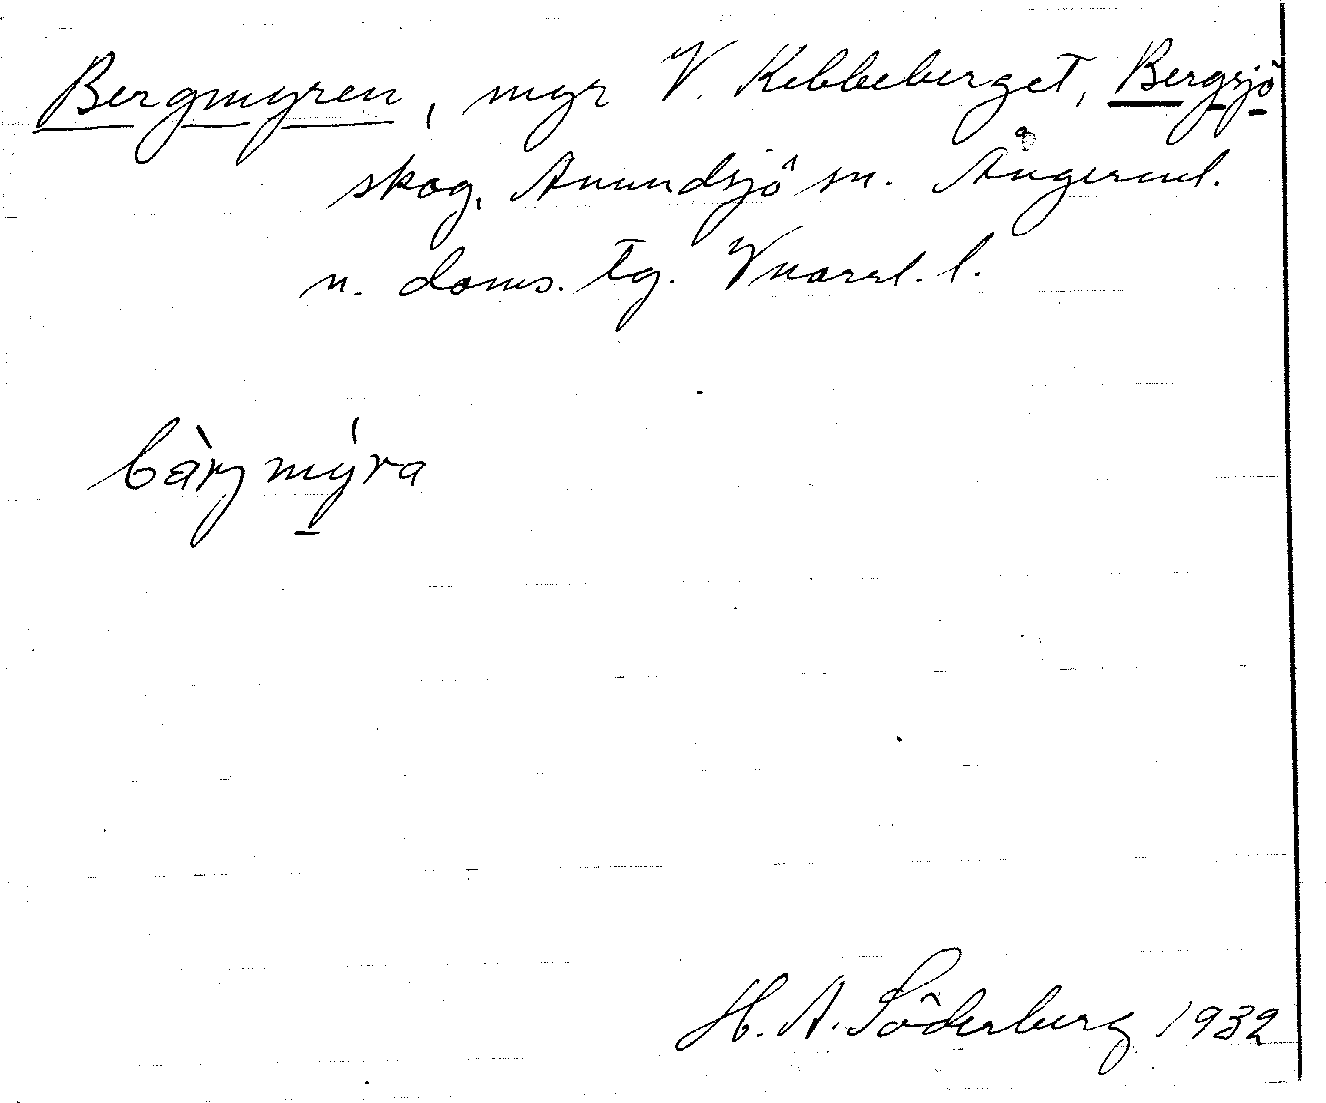 Bergmyren, myr V. Kebbeberget, Bergsjö
skog, Anundsjö sn. Ångerml.
n. doms. tg. Vnorrl. l.
bàrjmýra
H. A. Söderberg 1932